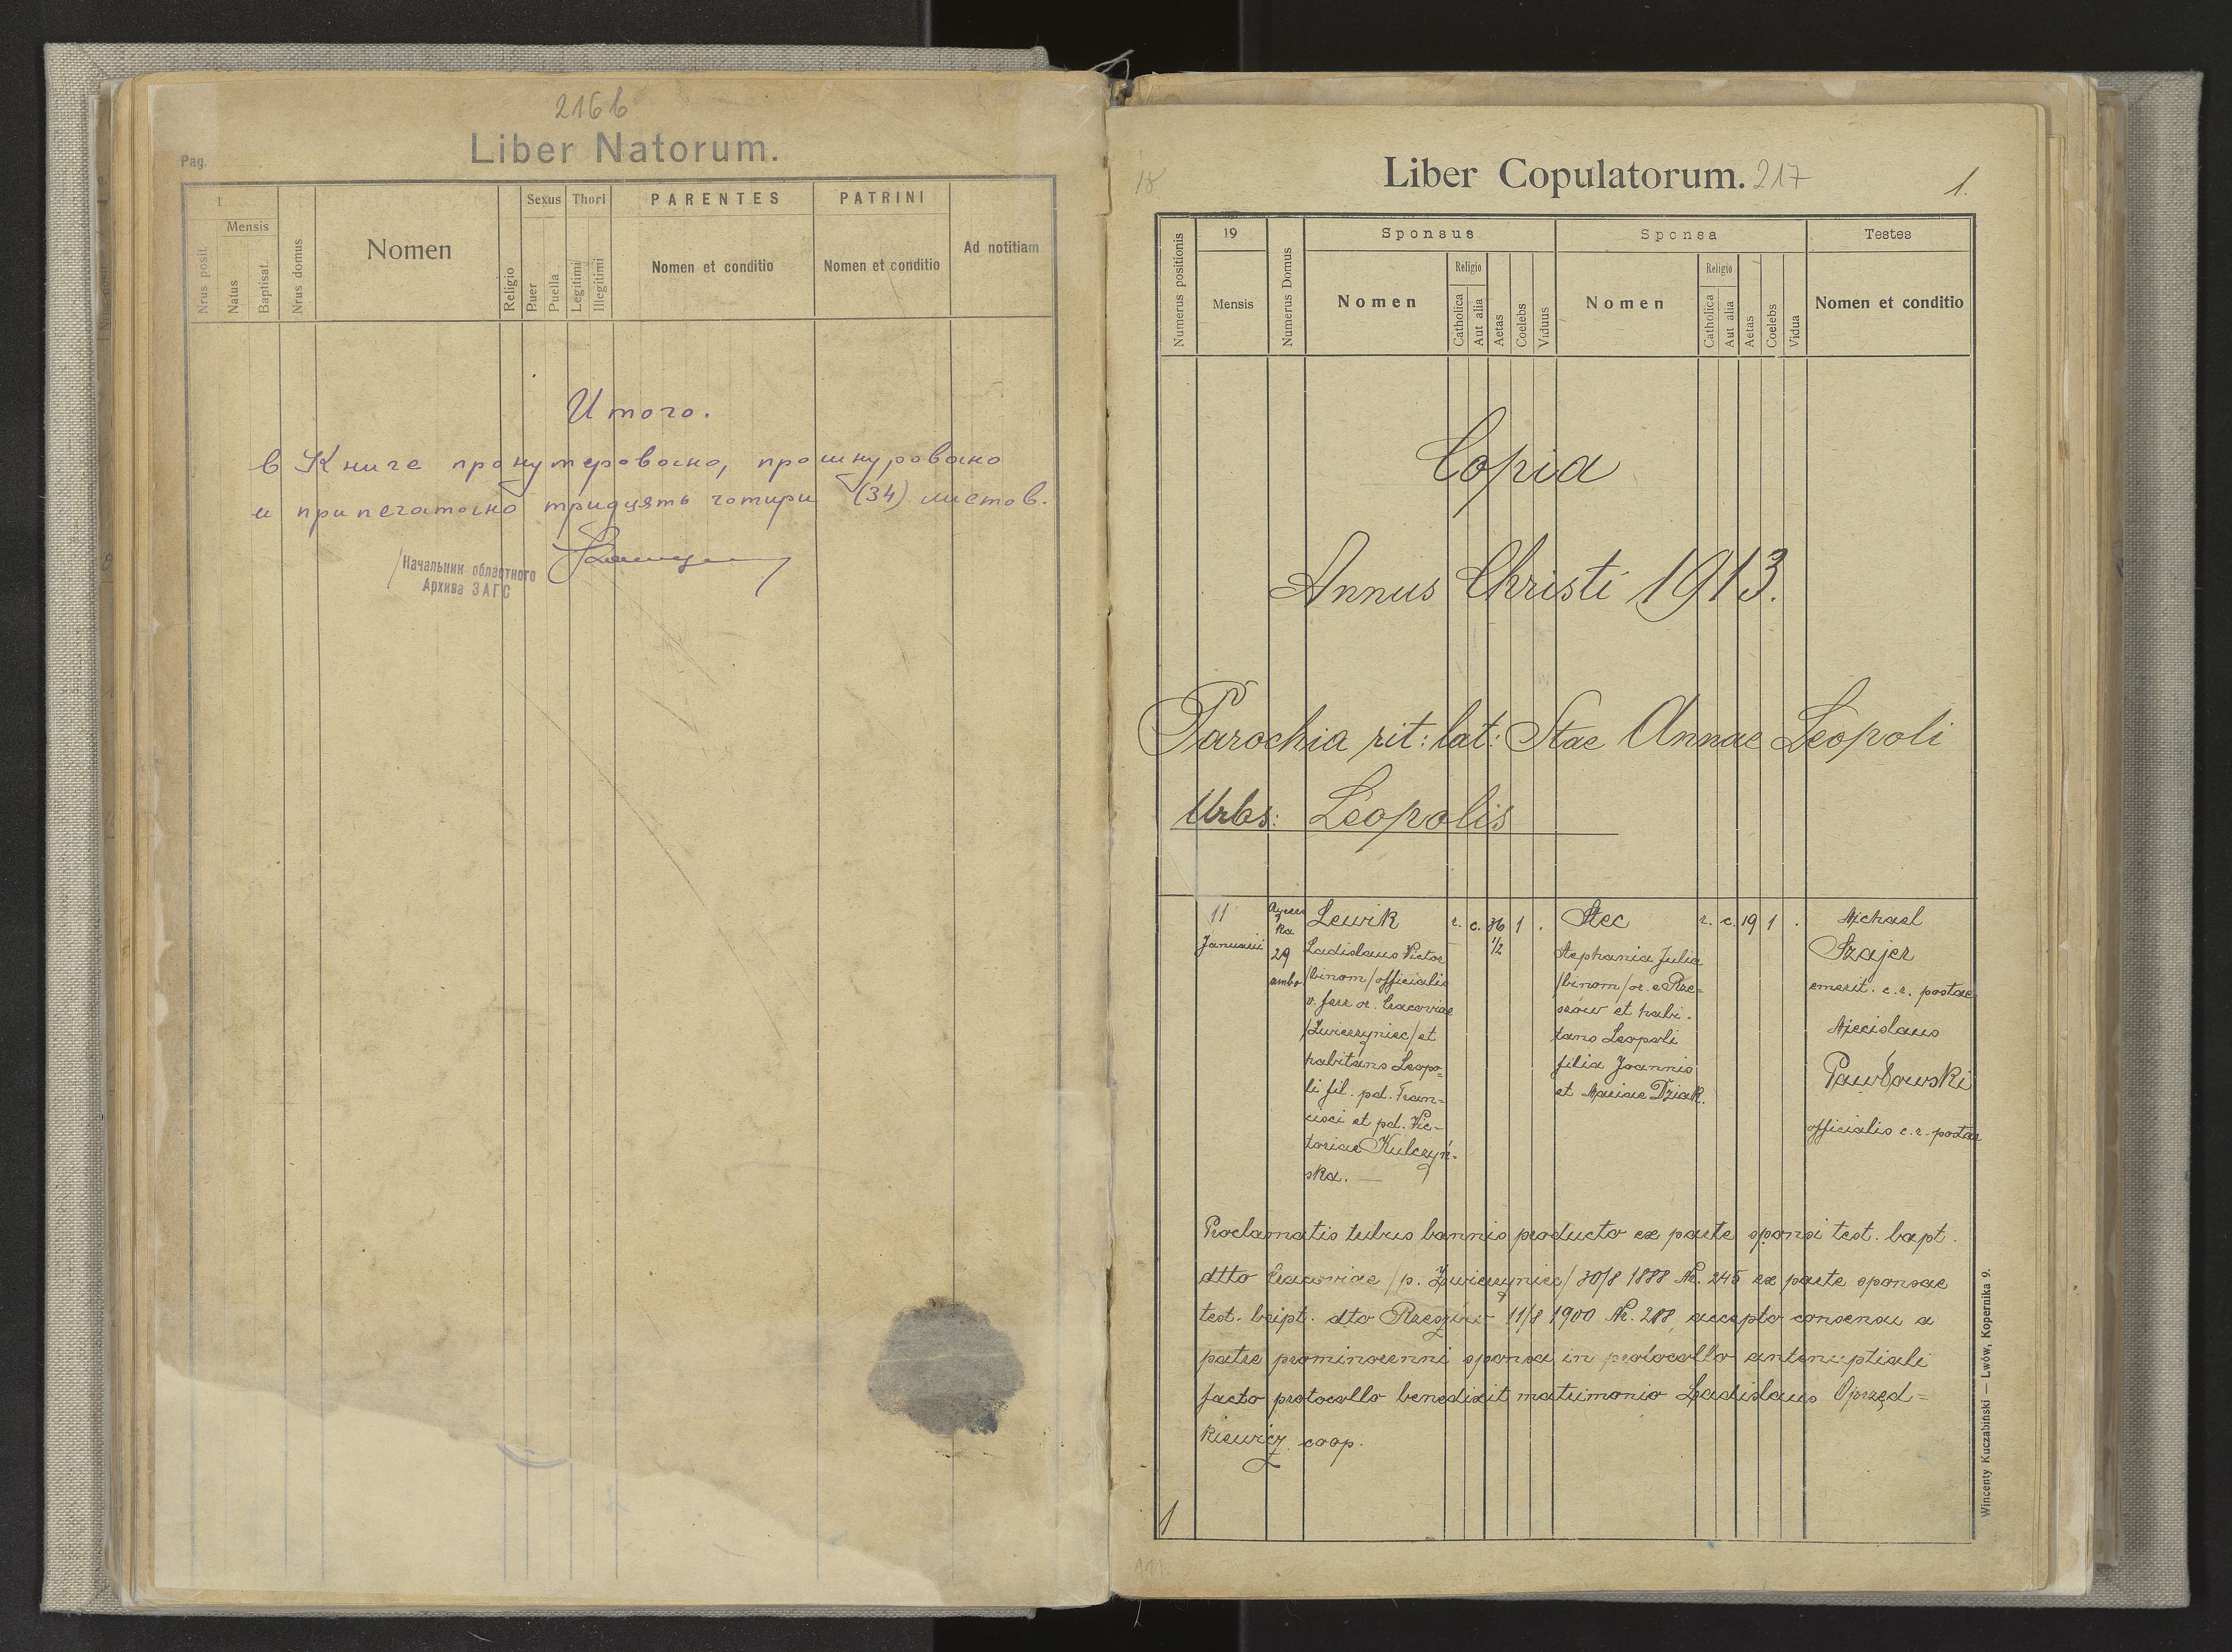 216 b
Liber Natorum.
Pag.
1
Mensis
Nrus posit.
Natus
Baptisat.
Nrus domus
Nomen
Religio
Sexus
Puer
Puella
Thori
Legitimi
Illegitimi
PARENTES
Nomen et conditio
PATRINI
Nomen et conditio
Ad notitiam
Итого.
в Книге пронумеровано, прошнуровано
и припечатано тридцять чотири (34) листов.
Начальник областного
Архива ЗАГС
18
Liber Copulatorum. 217
1.
Numerus positionis
19
Mensis
Numerus Domus
Sponsus
Nomen
Religio
Catholica
Aut alia
Aetas
Coelebs
Viduus
Sponsa
Nomen
Religio
Catholica
Aut alia
Aetas
Coelebs
Vidua
Testes
Nomen et conditio
Copia
Annus Christi 1913.
Parochia rit: lat: Stae Annae Leopoli
Urbs: Leopolis
1
11
Januarii
29
ambo
Lewik
Ladislaus Victor
/binom/ officialis
v. ferr or. Cracoviae
/Zwierzyniec/ et
habitans Leopo=
li fil. pd. Fran=
cisci et pd. Vic-
toriae Kulczyń-
ska. —
r. c. 36 1/2 1 .
Stec
Stephania Julia
/binom/ or. e Rze=
szów et habi-
tans Leopoli
filia Joannis
et Mariae Dziak.
r. c. 19 1 .
Michael
Szajer
emerit. c. r. postae
Miecislaus
Pawłowski
officialis c. r. postae
Proclamatis tribus bannis producto ex parte sponsi test. bapt.
dtto Cracoviae /p. Zwierzyniec/ 30/8 1888 Nr. 245 ex parte sponsae
test. bapt. dto Rzeszów 11/8 1900 Nr. 288, accepto consensu a
patre prominorenni sponsa in protocollo antenuptiali
facto protocollo benedixit matrimonio Ladislaus Oprzęd=
kiewicz coop.
Wincenty Kuczabiński — Lwów, Kopernika 9.